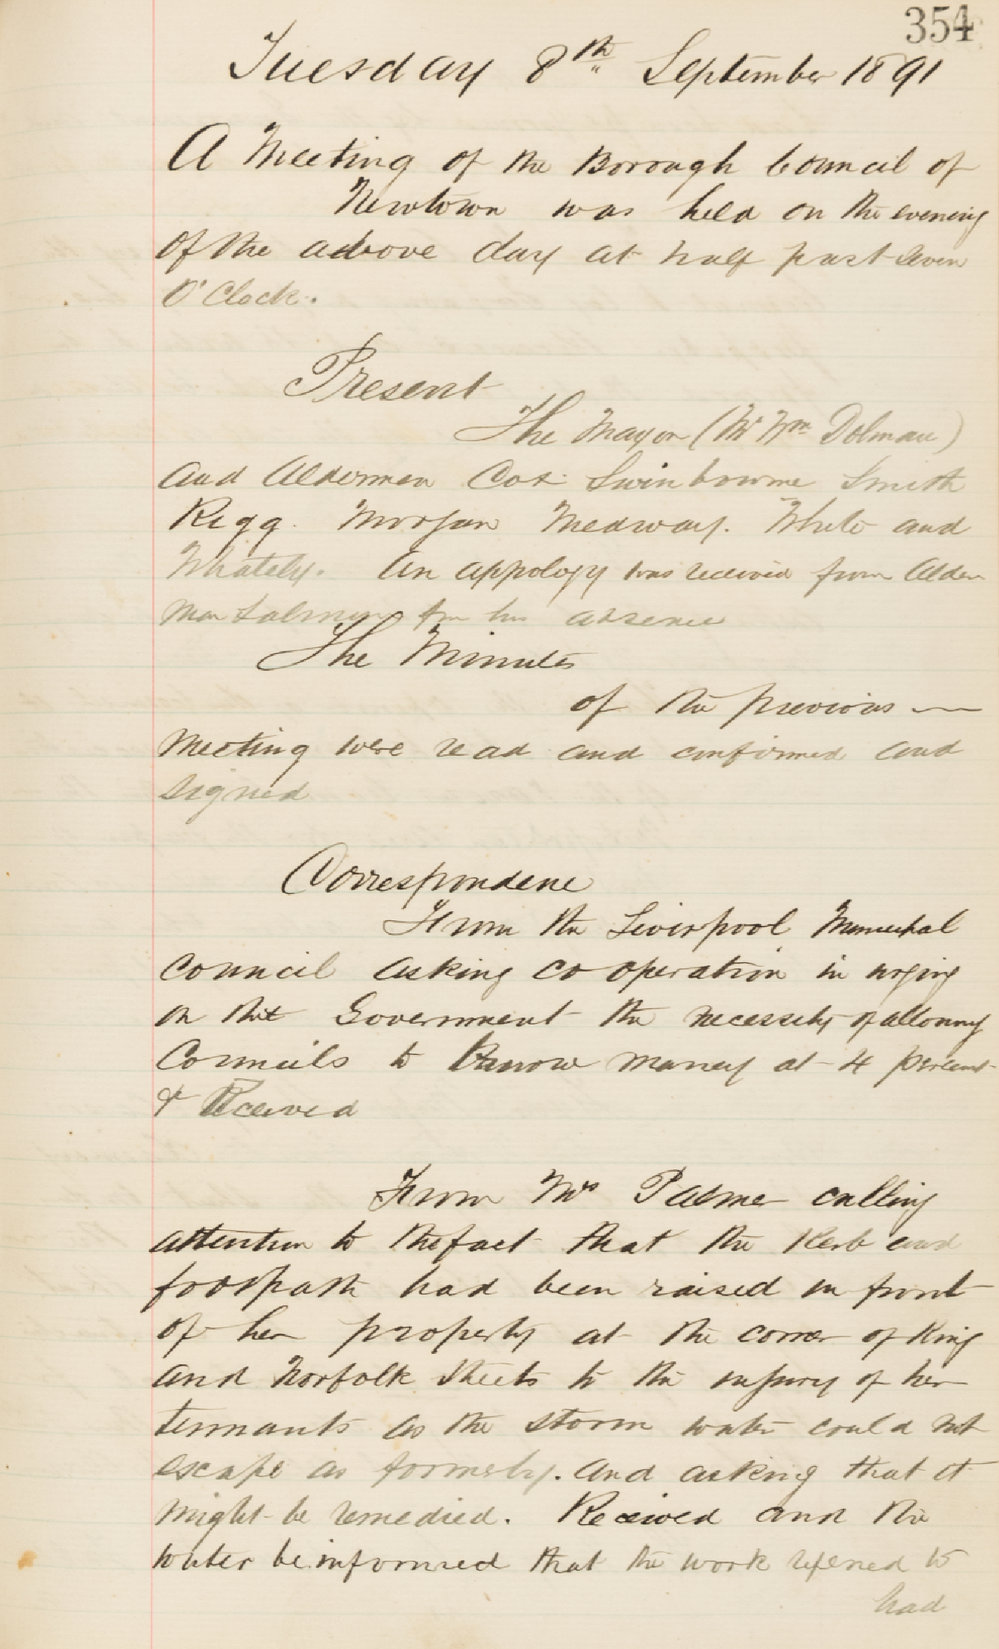 354
Tuesday 8th September 1891
A Meeting of the Borough Council of
Newtown was held on the evening
of the above day at half past seven
O'Clock.
Present
The Mayor (Mr Wm Dolman)
and Aldermen Cox Swinbourne Smith
Rigg. Morgan Medway. White and
Whately. An appology was received from Alder
man Salmon for his absence
The Minutes
of the previous
Meeting were read and confirmed and
signed
Correspondene
From the Liverpool Municipal
Council asking co operation in urging
on the Government the necessity of allowing
Councils to borrow money at 4 percent
& Received
From Mrs Palmer calling
attention to the fact that the Kerb and
footpath had been raised in front
of her property at the corner of King
and Norfolk Streets to the injury of her
tennants as the storm water could not
escape as formerly. And asking that it
might be remedied. Received and the
writer be informed that the work refered to
had